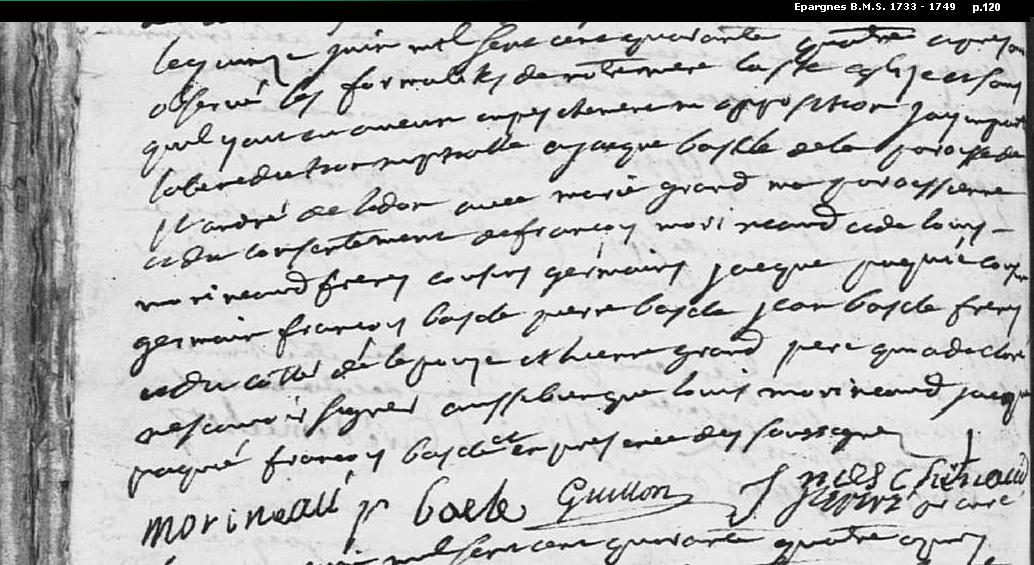 Epargnes B.M.S. 1733 - 1749 p.120
le quinze juin mil sept cent quarante quatre apres avoir
observé les formalités de notre mere la Ste eglise et sans
quil y ait eu aucun empeschement ny opposition j'ay imparti
la benediction nuptialle a jacque basle de la paroisse de
St andré de lidon avec marie grand ma paroissienne
et du consentement de francois morineaud et de louis
morineaud freres cousins germains jacque paquié cousin
germain francois basle pierre basle jean basle freres
et du cotté de lepouze etienne grand pere qui a declaré
ne scavoir signer aussi bien que louis morineaud jacque
paquié francois basle et en presence des soussignes
morineau p basle Guillon
mil sept cent quarante quatre apres